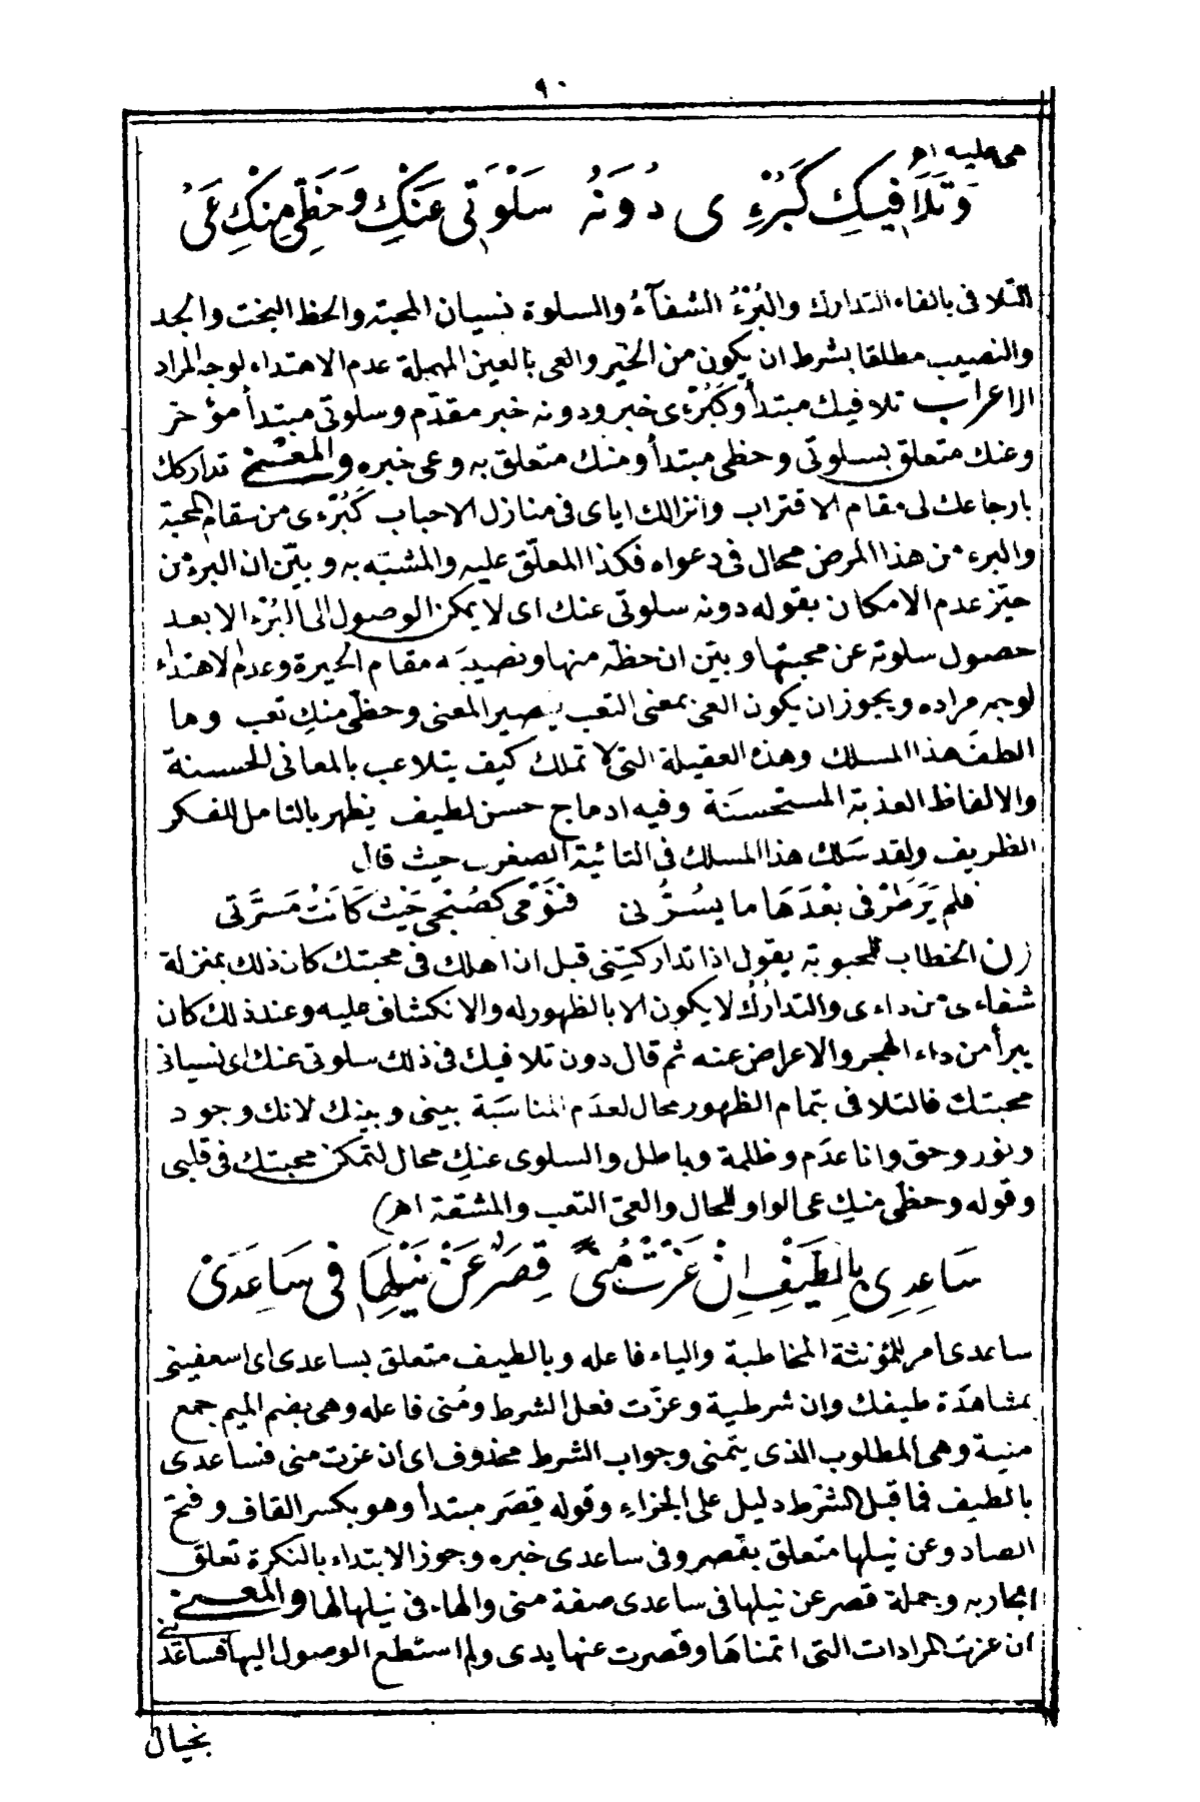 ٩٠
هي عليه اه
وَتَلَافِيكِ كَبُرْءِى دُونَهُ سَلْوَتِى عَنْكِ وَحَظِّى مِنْكِ عَىْ
التلافى بالفاء التدارك والبُرْءُ الشفآءُ والسلوة نسيان المحبة والحظ البخت والجد
والنصيب مطلقا بشرط ان يكون من الخير والعى بالعين المهملة عدم الاهتداء لوجه المراد
الاعراب تلافيك مبتدأ وكَبُرْءِى خبر ودونه خبر مقدّم وسلوتى مبتدأ مؤخر
وعنك متعلق بسلوتى وحظى مبتدأ ومنك متعلق به وعى خبره والمعنى تداركك
بارجاعك لى مقام الاقتراب وانزالك اياى فى منازل الاحباب كَبُرْءِى من سقام المحبة
والبرء من هذا المرض محال فى دعواه فكذا المعلّق عليه والمشبّه به وبيّن ان البرء من
حيّز عدم الامكان بقوله دونه سلوتى عنك اى لا يمكن الوصول الى البُرْء الا بعد
حصول سلوته عن محبتها وبيّن ان حظّه منها ونصيبَه مقام الحيرة وعدم الاهتداء
لوجه مراده ويجوز ان يكون العى بمعنى التعب يصير المعنى وحظى منكِ تعب وما
الطفَ هذا المسلك وهذه العقيلة التى لا تملك كيف يتلاعب بالمعانى الحسنة
والالفاظ العذبة المستحسنَة وفيه ادماج حسن لطيف يظهر بالتامل للفكر
الظريف ولقد سَلك هذا المسلك فى التائية الصغرى حيث قال
فلم يَرَ طَرْفى بعْدَهَا ما يسُرُّنى فنَوْمى كصُبْحى حَيْث كَانَتْ مَسَرَّتى
(ن) الخطاب للمحبوبة يقول اذا تداركتِنِى قبل ان اهلك فى محبتك كان ذلك بمنزلة
شفاءى من داءى والتدارُك لا يكون الا بالظهور له والانكشاف عليه وعند ذلك كان
يبرأ من داء الهجر والاعراض عنه ثم قال دون تلافيك فى ذلك سلوتى عنك اى نسيانى
محبتك فالتلافى بتمام الظهور محال لعدَم المناسَبَة بينى وبينك لانك وجود
ونور وحق وانا عدَم وظلمة وباطل والسلوى عنكِ محال لتمكن محبتك فى قلبى
وقوله وحظّى منكِ عى الواو للحال والعىّ التعب والمشقة اهـ)
سَاعِدِى بِالطَيْفِ اِنْ عَزَّتْ مُنىً قِصَرٌ عَنْ نَيْلِهَا فِى سَاعِدَىْ
ساعدى امر للمؤنثة المخاطبة والياء فاعله وبالطيف متعلق بساعدى اى اسعفينى
بمشاهَدَة طيفك وان شرطية وعزّت فعل الشرط ومُنى فاعله وهى بضم الميم جمع
منية وهى المطلوب الذى يتمنى وجواب الشرط محذوف اى ان عزت منى فساعدى
بالطيف فما قبل الشرط دليل على الجزاءِ وقوله قِصَر مبتدأ وهو بكسر القاف وفتح
الصاد وعن نيلها متعلق بقصر وفى ساعدى خبره وجوز الابتداء بالنكرة تعلق
الجار به وجملة قصر عن نيلها فى ساعدى صفة منى والهاء فى نيلها لها والمعنى
ان عزت المرادات التى اتمناهَا وقصرت عنها يدى ولم استطع الوصول اليها فساعدينى
بخيال